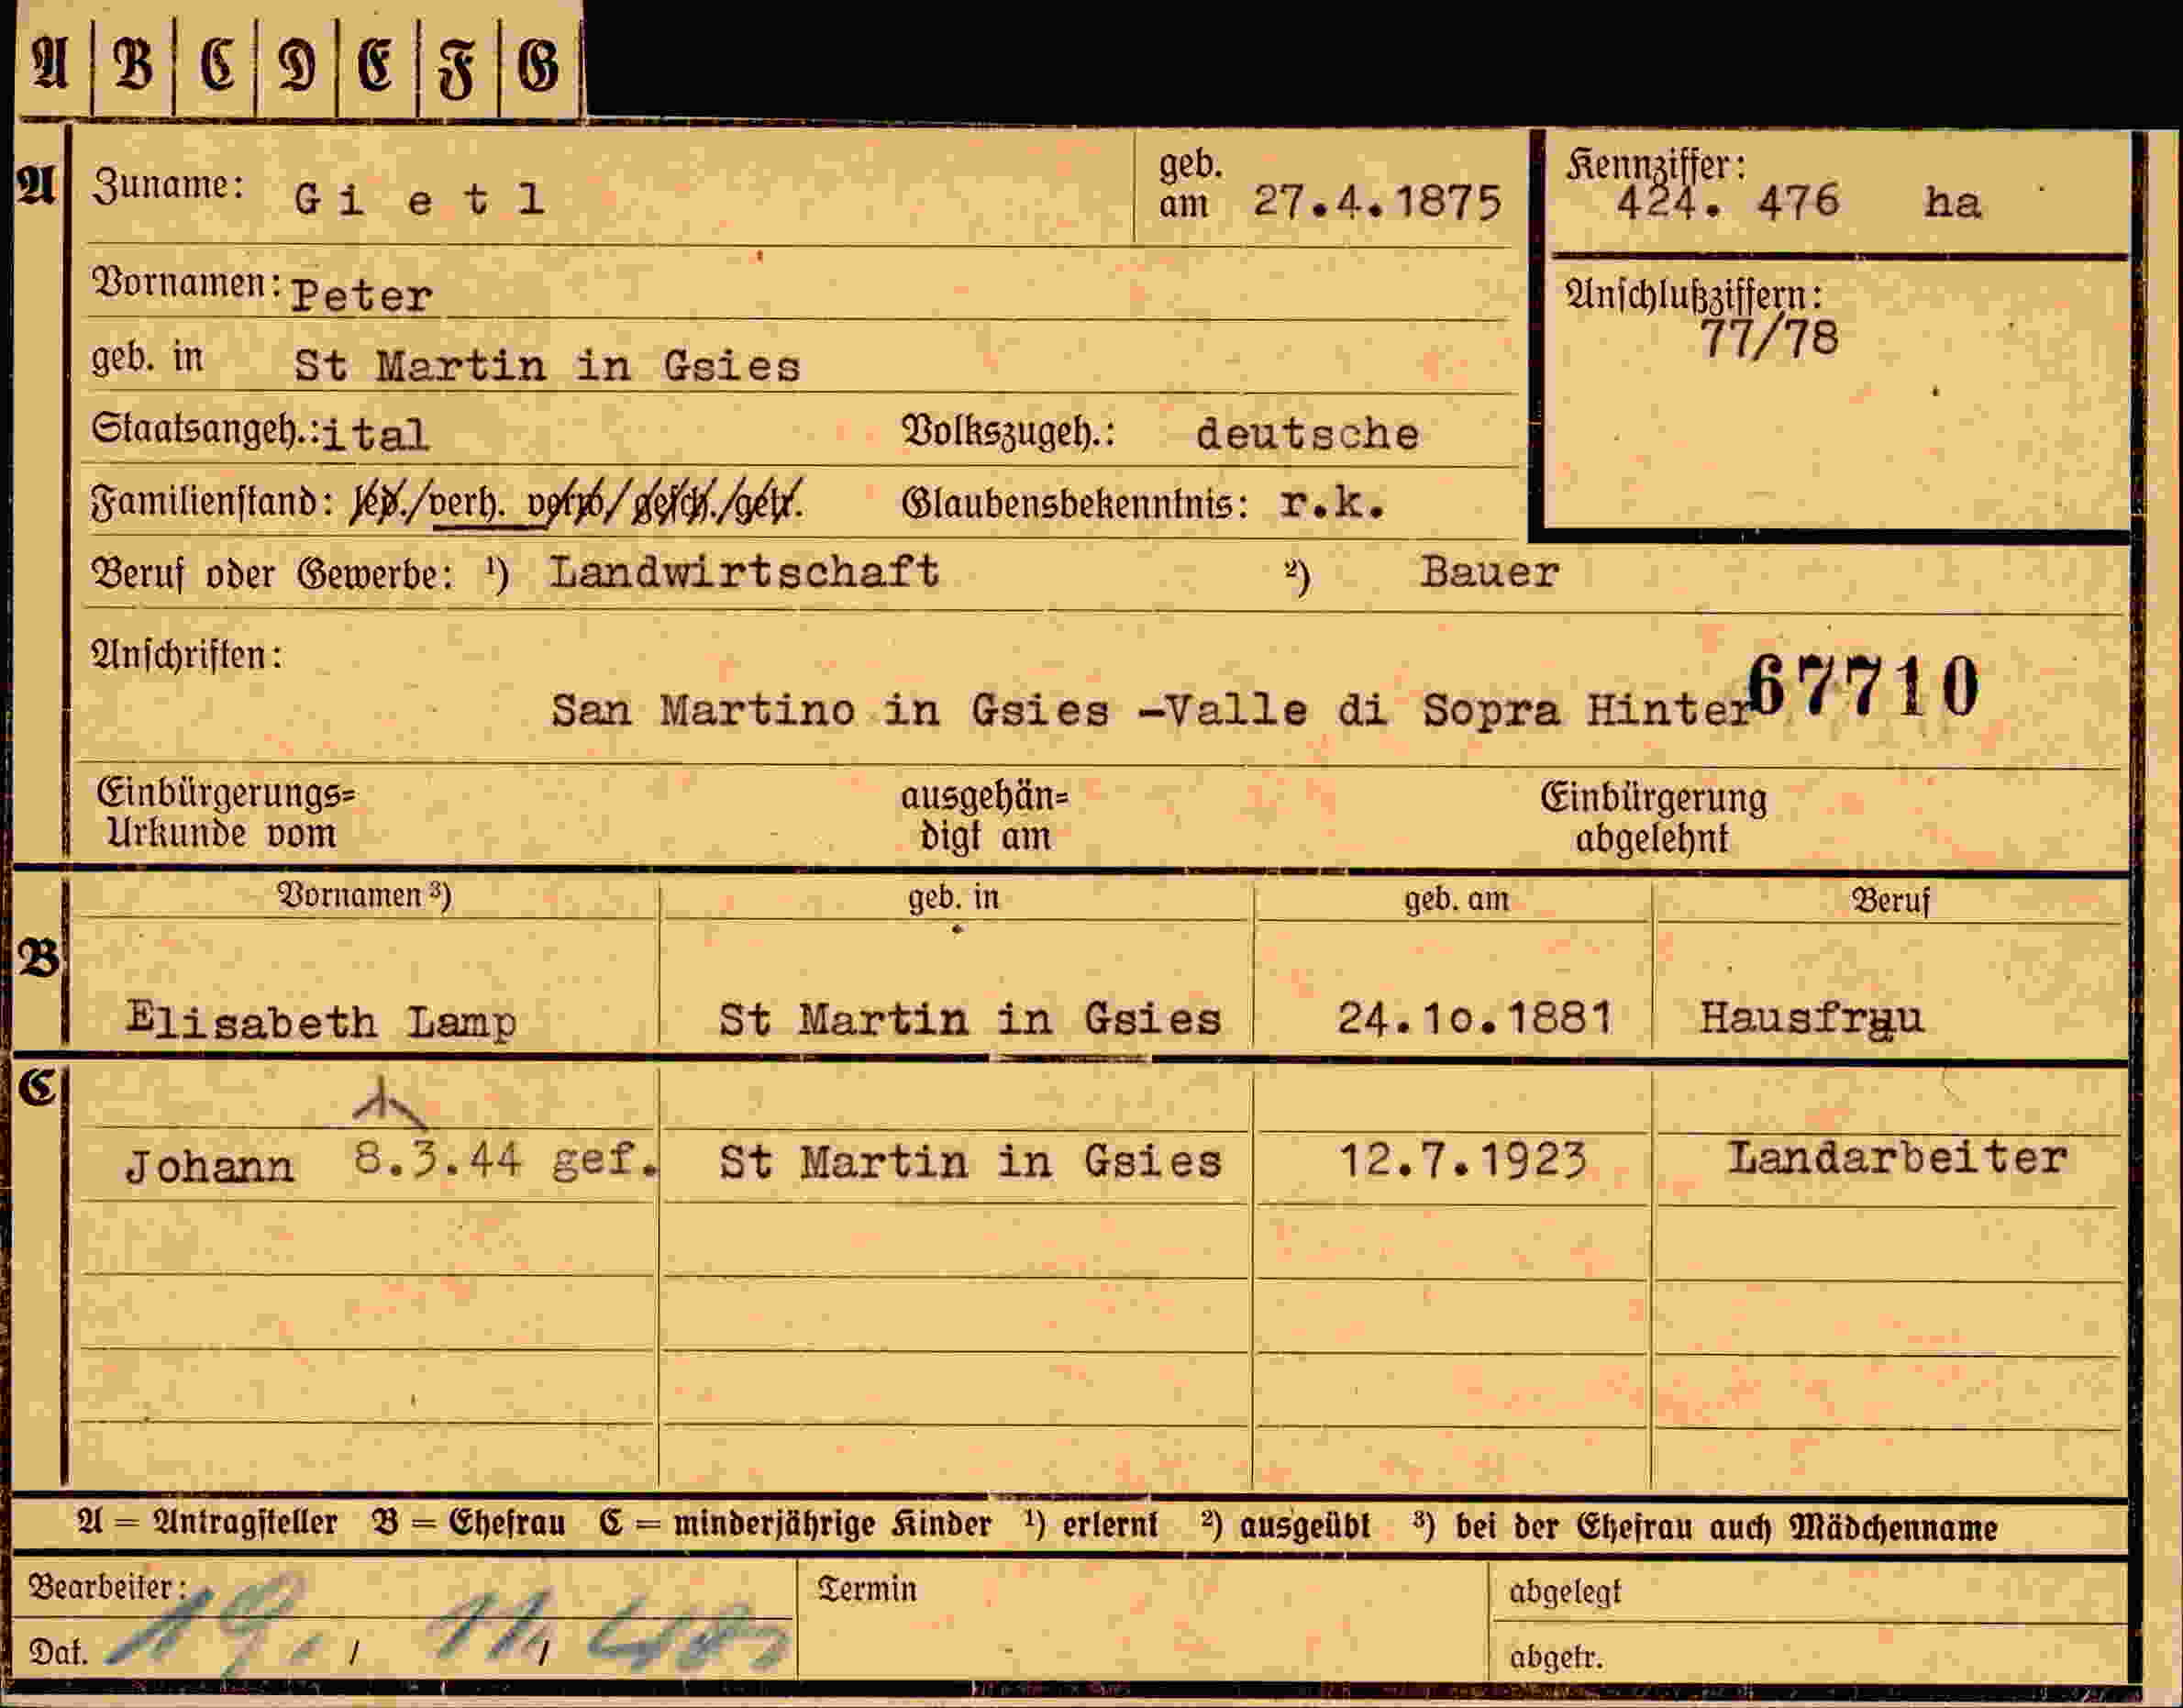 A B C D E F G
A Zuname: Gietl geb. am 27.4.1875 Kennziffer: 424. 476 ha
Vornamen: Peter Anschlußziffern: 77/78
geb. in St Martin in Gsies
Staatsangeh.: ital Volkszugeh.: deutsche
Familienstand: led./verh. verw/gesch./getr. Glaubensbekenntnis: r.k.
Beruf oder Gewerbe: ¹) Landwirtschaft ²) Bauer
Anschriften:
San Martino in Gsies -Valle di Sopra Hinter 67710
Einbürgerungs= ausgehän= Einbürgerung
Urkunde vom digt am abgelehnt
Vornamen ³) geb. in geb. am Beruf
B
Elisabeth Lamp St Martin in Gsies 24.10.1881 Hausfrau
C
Johann 8.3.44 gef. St Martin in Gsies 12.7.1923 Landarbeiter
A = Antragsteller B = Ehefrau C = minderjährige Kinder ¹) erlernt ²) ausgeübt ³) bei der Ehefrau auch Mädchenname
Bearbeiter: Termin abgelegt
Dat. 19. 11. abgetr.